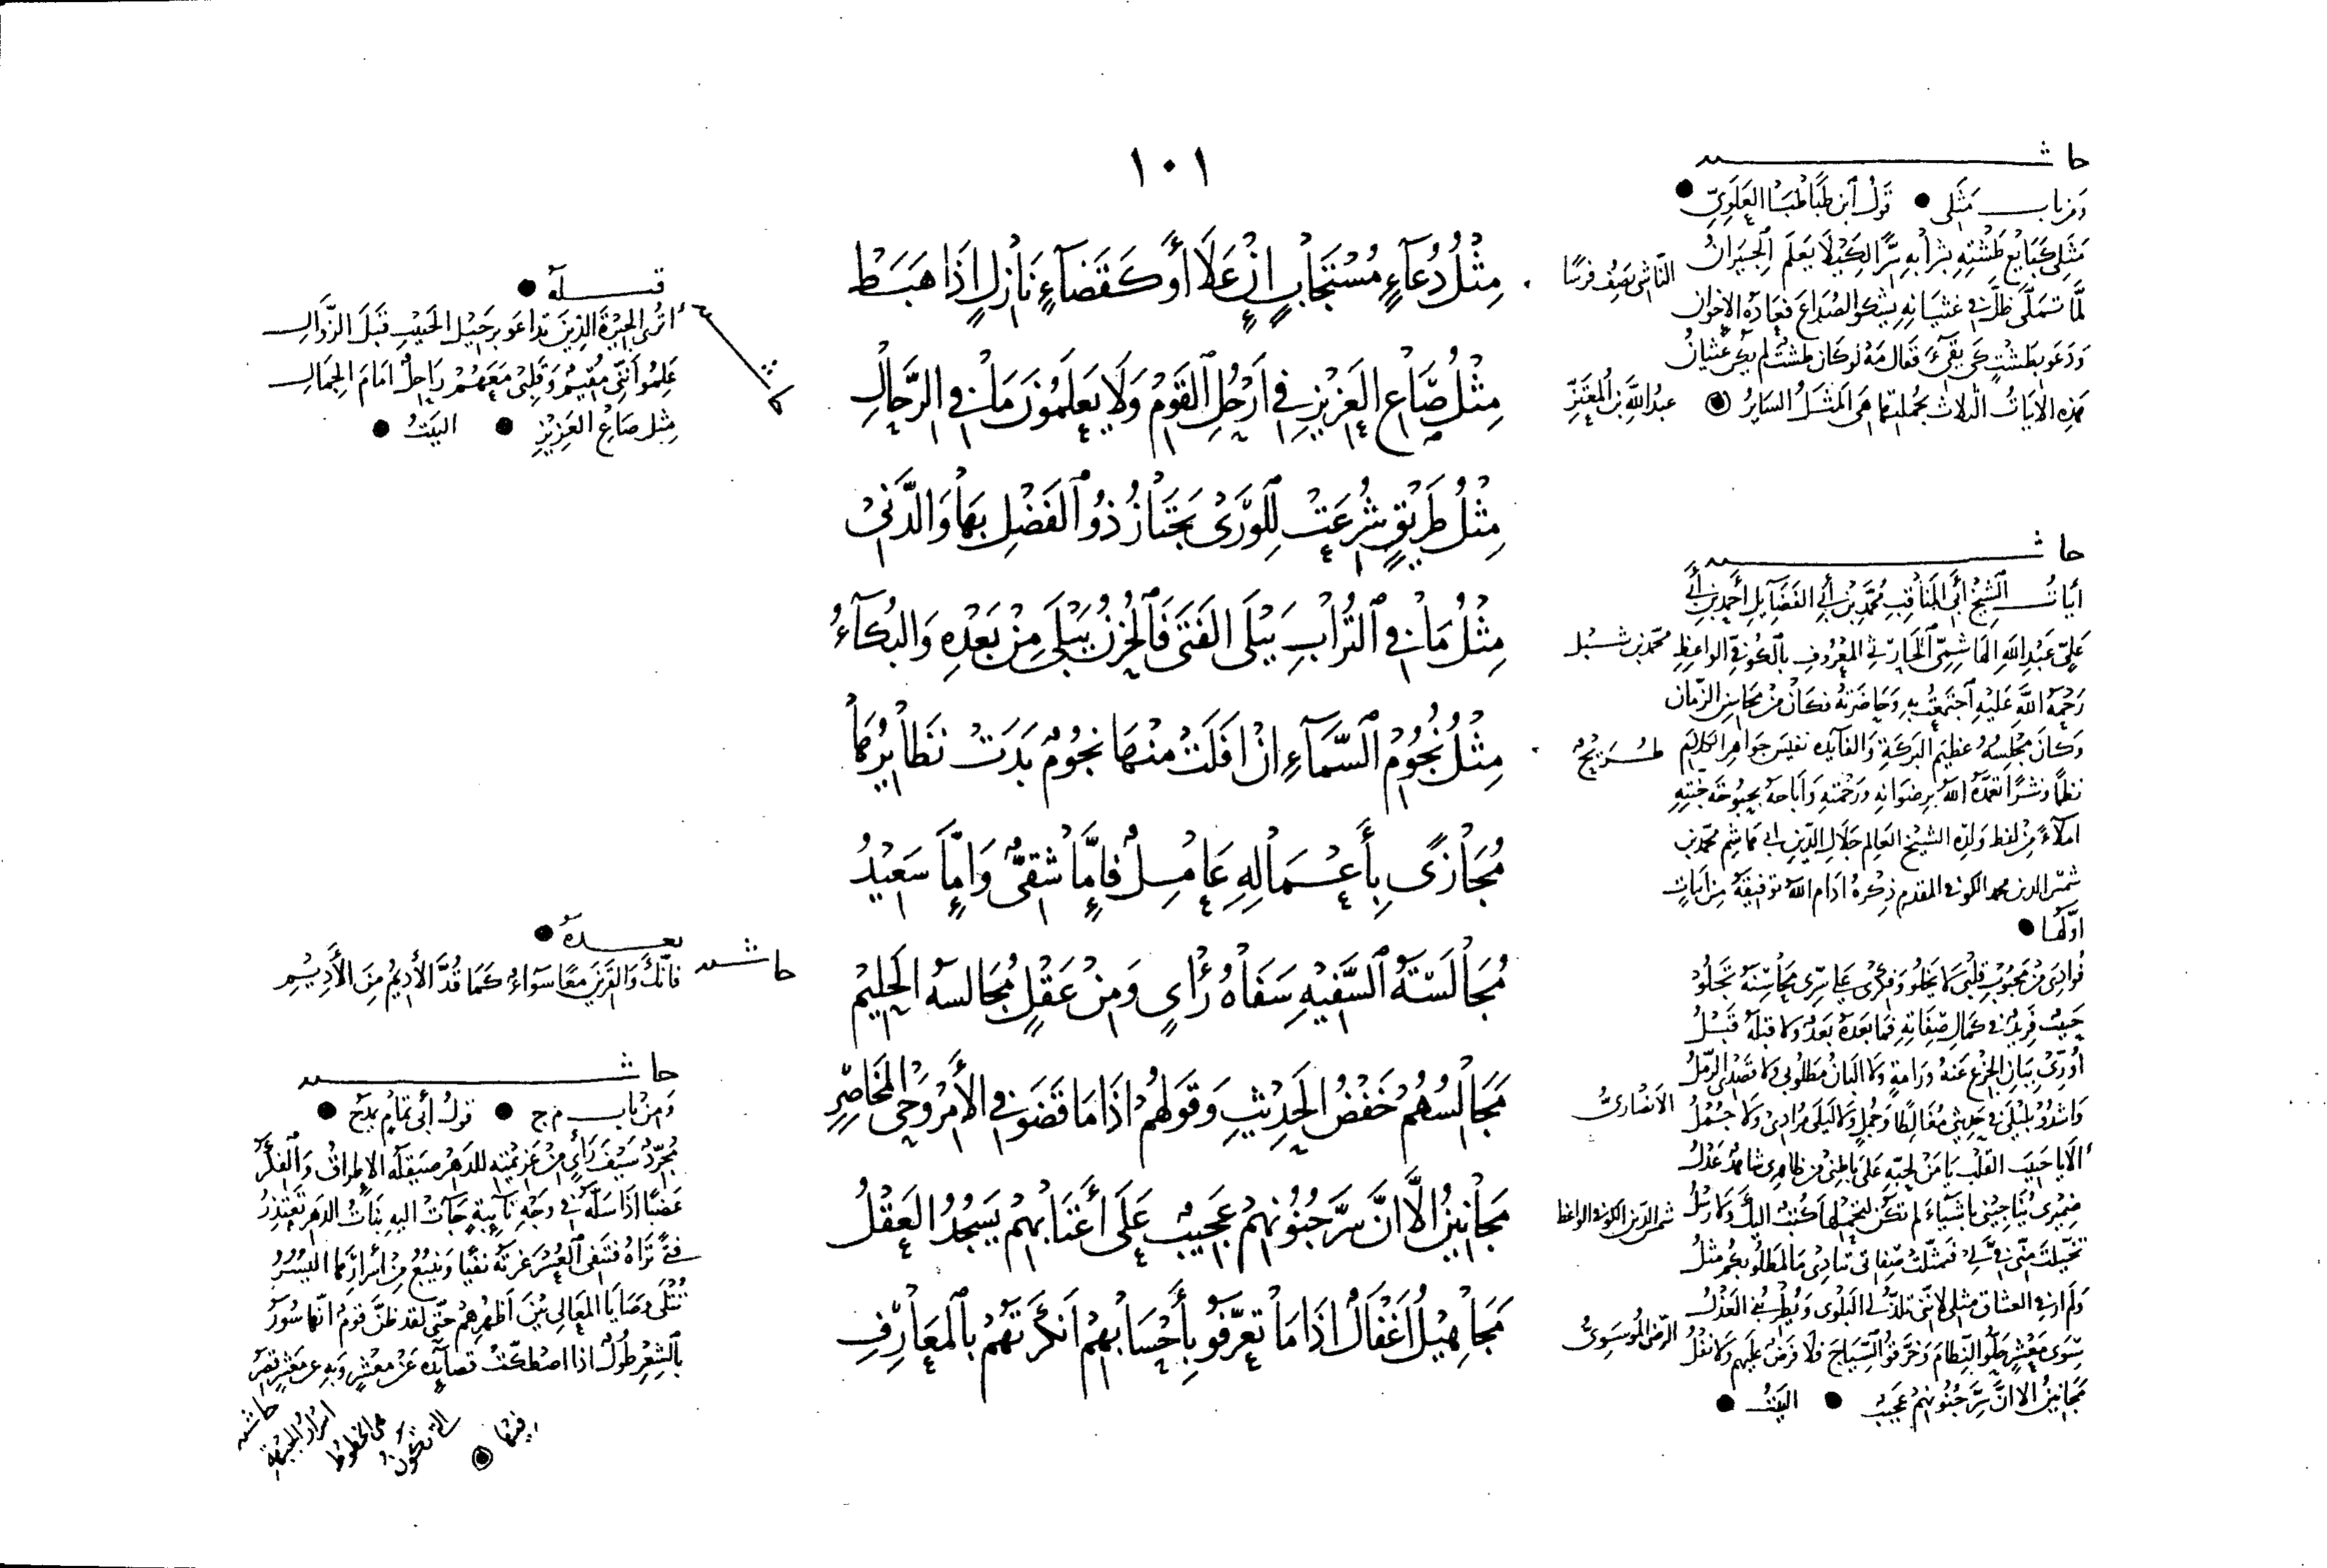 ١٠١
مِثْلُ دُعَآءٍ مُسْتَجَابٍ اِنْ عَلَا أَوْ كَقَضَآءٍ نَازِلٍ اِذَا هَبَطْ
مِثْلُ صَاعِ العَزِيزِ فِي اَرْحُلِ القَوْمِ وَلَا يَعلَمُونَ مَا فِي الرِّحَالِ
مِثْلُ طَرِيقٍ شُرِعَتْ لِلوَرَى يَجْتَازُ ذُو الفَضْلِ بِهَا وَالدَّنِيْ
مِثْلُ مَا فِي التُّرَابِ يَبْلَى الفَتَى فَالحُزنُ يَبْلَى مِنْ بَعْدِهِ وَالبُكَآءُ
مِثْلُ نُجُوْمِ السَّمَآءِ اِنْ اَفَلَتْ مِنْهَا نُجُوْمٌ بَدَتْ نَظَايِرُهَا
مُجَازًى بِأَعْمَالِهِ عَامِلٌ فَاِمَّا شَقِيٌّ وَاِمَّا سَعِيْدُ
مُجَالَسَةُ السَّفِيْهِ سَفَاهُ رَأيٍ وَمِنْ عَقْلٍ مُجَالَسَةُ الحَلِيْمِ
مَجَالِسُهُمْ خَفْضُ الحَدِيْثِ وَقَولُهُمْ اِذَا مَا قَضَوْا فِي الأَمْرِ وَحْيُ المَخَاصِرِ
مَجَانِيْنُ اِلَّا اَنَّ سِرَّ جُنُوْنِهِمْ عَجِيْبٌ عَلَى أَعْتَابِهِمْ يَسْجُدُ العَقْلُ
مَجَاهِيْلُ اَغْفَالٌ اِذَا مَا تَعَرَّفُوا بِأَحْسَابِهِمْ اَنْكَرْتَهُمْ بِالمَعَارِفِ
النَّاشِي يَصِفُ فَرَسًا
عبدُ اللَّهِ بن المُعْتَزِّ
محمَّد بن شبل
طُرَيْحٌ
الأَنْصَارِيُّ
شمس الدين الكوفي الواعظ
الرضي الموسويُّ
حاشيه
وَمِن باب مَثَلِي • قَولُ ابن طَبَاطَبَا العَلَوِيِّ •
مَثَلِي كَبَايع طَشْتِهِ بشَرابِهِ سِرًّا لِكَيْلَا يَعلَمَ الجِيرَانُ
لَمَّا تَمَلَّى ظَلَّ فِي غَثَيَانِهِ يَشكُو الصُدَاعَ فَعَادَهُ الاِخوَان
وَدَعَو بطَشتٍ كَي يَقِيءَ فَقَال مَهْ لَو كَان طَشتٌ لَم يَكُن غَثَيانُ
هَذِهِ الابيَاتُ الثلاث بجملتها هِيَ المَثَلُ السَايِرُ
حاشيه
أَبيَاتُ الشَيْخ أَبِي المَنَاقِبِ مُحَمَّدِ بن أَبِي الفَضَآيِلِ أَحمَدِ بن أَبِي
عَلِيِّ عَبْدِ اللَّهِ الهَاشِمِيِّ الحَارِثِي المَعْرُوفِ بِالكُوفِي الوَاعِظِ
رَحْمَة اللَّهِ عَلَيهِ اجتَمَعْتُ بِهِ وَحَاضَرتهُ فكَانَ مِنْ مَحَاسِن الزَّمَان
وَكَانَ مَجْلِسُهُ عَظِيمَ البَرَكَةِ وَالفَآيدَه نَفِيسَ جَوَاهِرِ الكلَامِ
نظمًا ونثرًا تغمَّدَهُ اللهُ برضوَانِهِ وَرَحْمَتِهِ وَأَبَاحَهُ بحبُوحَةَ جَنَّتِهِ
املآءً مِن لَفظ وَلَدِه الشَيْخ العَالِم جَلَالِ الدِّينِ ابي هَاشِم محمَّد بن
شمس الدين محمد الكوفي المقدم ذِكْرهُ ادَام الله توفيقَهُ مِن اَبيَاتٍ
اَوَّلُهَا •
فُوَادِيَ مِنْ مَحبُوبِ قَلبِيَ لَا يَخلُو وَفِكْرِي عَلَى سِرِّي مَحَاسِنَهُ تَجْلُو
حَبِيبٌ فَرِيدٌ فِي كَمَالِ صِفَاتِهِ فَمَا بَعدَهُ بَعدٌ ولا قبلَهُ قَبْلُ
أُوَرِّي بِبَانِ الجِزْعِ عَنهُ وَرَامَةٍ وَلَا البَانُ مَطلُوبي وَلا قَصْدِيَ الرَّملُ
وَاشدُو بِلَيْلَى فِي حَدِيثي مُغَالِطًا وَجُملٍ وَلَا لَيلَى مُرَادِي وَلَا جُمْلُ
أَلَا يَا حَبِيبَ القَلب يَا مَنْ لِحُبِّهِ عَلَى بَاطِنِي مِن ظَاهِرِي شَاهِدٌ عَدْلُ
ضَمِيْرِي يُنَاجِيْنِي بِأَشْيَاءَ لَم تَكُنْ لِتَحْمِلَهَا كُتبٌ اليكَ وَلَا رُسْلُ
وَلَم ارَ فِي العشاق مثلي لأنَّني تَلَذُّ لِي البَلْوَى وَيُطْرِبُنِي العَذْلُ
سِوَى مَعْشَرٍ حَلُّوا النِّظَامَ وَخَرَّقُوا السِّيَاجَ فَلَا فَرضٌ عَلَيهِم وَلَا نَفْلُ
مَجَانِيْنُ الا انَّ سِرَّ جُنُونِهِمْ عَجِيبٌ • البَيْتُ •
قبله •
أَتَرى الجِيْرَةَ الذِينَ تَدَاعَو برَحَيْلِ الحَبِيْبِ قَبْلَ الزَّوَالِ
عَلِمُوا أَنَّنِي مُقِيْمٌ وَقَلْبِي مَعَهُمْ رَاحِلٌ اَمَامَ الجِمَالِ
مِثل صَاعِ العَزِيْزِ • البَيْتُ •
بعده •
حاشيه
فَاِنَّكَ وَالقَرِينَ مَعًا سَوَاءٌ كَمَا قُدَّ الأَدِيْمُ مِنَ الأَدِيْمِ
حاشيه
وَمِن باب م ج • قولُ أَبِي تَمَّامٍ يمدَح •
مُجَرِّدٌ سَيْفَ رَأيٍ مِنْ عَزِيْمَتِهِ للدَّهْرِ صَيْقَلُهُ الاِطرَاقُ وَالفِكَرُ
عَضْبًا اذَا سَلَّهُ فِي وَجْهِ نَايِبَةٍ جَآءَتْ اليهِ بَنَاتُ الدَّهرِ تَعْتَذِرُ
تُتْلَى وَصَايَا المَعَالي بَيْنَ أَظهُرِهِمْ حَتَّى لَقد ظَنَّ قَومٌ انَّهَا سُوَرُ
بالشِّعْرِ طُولٌ اذَا اصْطَكَّتْ قَصَآيِدُهُ عَنْ مَعْشَرٍ وَبِهِ عن مَعْشَرٍ قِصَرُ
حاشيه